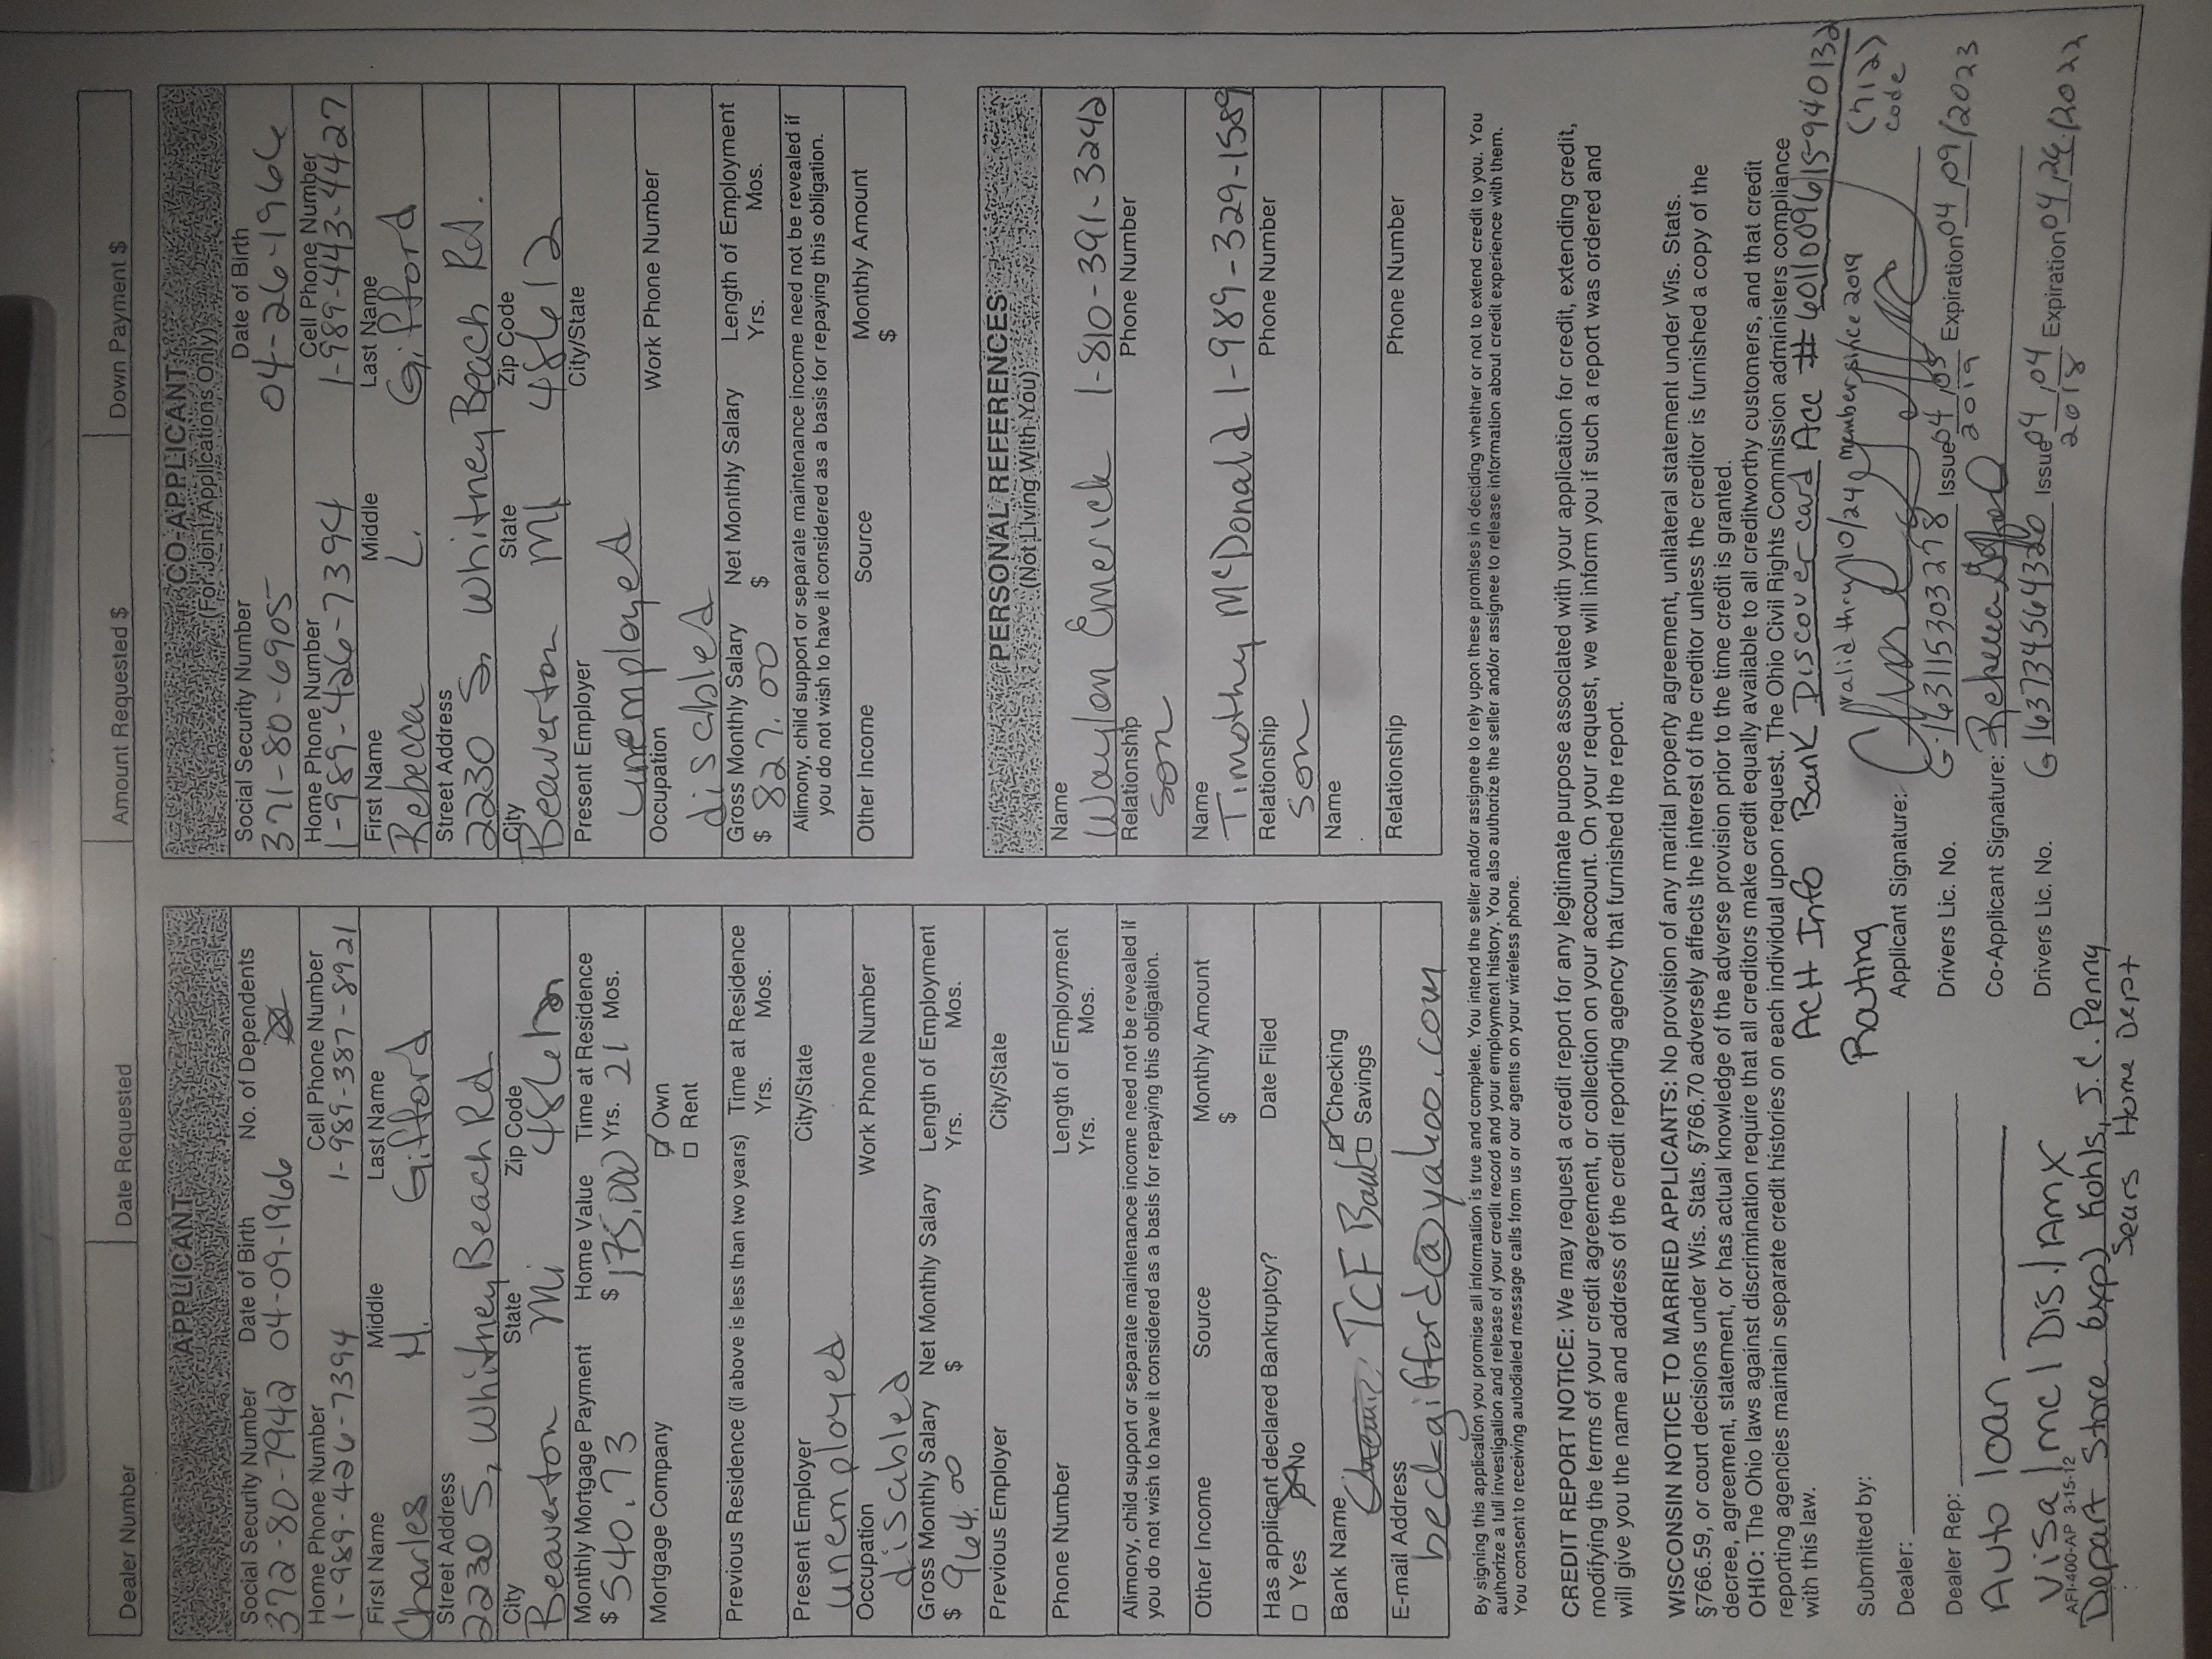 Dealer Number Date Requested Amount Requested $ Down Payment $
APPLICANT
Social Security Number Date of Birth No. of Dependents
[redacted] [redacted]
Home Phone Number Cell Phone Number
1-989-426-7394 1-989-387-8921
First Name Middle Last Name
Charles H. Gifford
Street Address
2230 S, Whitney Beach Rd
City State Zip Code
Beaverton Mi 48612
Monthly Mortgage Payment Home Value Time at Residence
$ 540.73 $ 175,000 Yrs. 21 Mos.
Mortgage Company Own
Rent
Previous Residence (if above is less than two years) Time at Residence
Yrs. Mos.
Present Employer City/State
unemployed
Occupation Work Phone Number
disabled
Gross Monthly Salary Net Monthly Salary Length of Employment
$ 964.00 $ Yrs. Mos.
Previous Employer City/State
Phone Number Length of Employment
Yrs. Mos.
Alimony, child support or separate maintenance income need not be revealed if
you do not wish to have it considered as a basis for repaying this obligation.
Other Income Source Monthly Amount
$
Has applicant declared Bankruptcy? Date Filed
Yes No
Bank Name TCF Bank Checking
Savings
E-mail Address
beckgifford@yahoo.com
CO-APPLICANT
(For Joint Applications Only)
Social Security Number Date of Birth
[redacted] [redacted]
Home Phone Number Cell Phone Number
1-989-426-7394 1-989-443-4427
First Name Middle Last Name
Rebecca L. Gifford
Street Address
2230 S, Whitney Beach Rd.
City State Zip Code
Beaverton Mi 48612
Present Employer City/State
unemployed
Occupation Work Phone Number
disabled
Gross Monthly Salary Net Monthly Salary Length of Employment
$ 827.00 $ Yrs. Mos.
Alimony, child support or separate maintenance income need not be revealed if
you do not wish to have it considered as a basis for repaying this obligation.
Other Income Source Monthly Amount
$
PERSONAL REFERENCES
(Not Living With You)
Name
Waylon Emerick 1-810-391-3242
Relationship Phone Number
Son
Name
Timothy McDonald 1-989-329-1589
Relationship Phone Number
Son
Name
Relationship Phone Number
By signing this application you promise all information is true and complete. You intend the seller and/or assignee to rely upon these promises in deciding whether or not to extend credit to you. You
authorize a full investigation and release of your credit record and your employment history. You also authorize the seller and/or assignee to release information about credit experience with them.
You consent to receiving autodialed message calls from us or our agents on your wireless phone.
CREDIT REPORT NOTICE: We may request a credit report for any legitimate purpose associated with your application for credit, extending credit,
modifying the terms of your credit agreement, or collection on your account. On your request, we will inform you if such a report was ordered and
will give you the name and address of the credit reporting agency that furnished the report.
WISCONSIN NOTICE TO MARRIED APPLICANTS: No provision of any marital property agreement, unilateral statement under Wis. Stats.
§766.59, or court decisions under Wis. Stats. §766.70 adversely affects the interest of the creditor unless the creditor is furnished a copy of the
decree, agreement, statement, or has actual knowledge of the adverse provision prior to the time credit is granted.
OHIO: The Ohio laws against discrimination require that all creditors make credit equally available to all creditworthy customers, and that credit
reporting agencies maintain separate credit histories on each individual upon request. The Ohio Civil Rights Commission administers compliance
with this law.
ACH Info Bank Discover card Acc # [redacted]
Routing valid thru [redacted] member since 2019 [redacted] code
Submitted by:
Dealer:
Dealer Rep:
Applicant Signature:
Drivers Lic. No. [redacted] Issue [redacted] Expiration [redacted]
Co-Applicant Signature: Rebecca Gifford
Drivers Lic. No. [redacted] Issue [redacted] Expiration [redacted]
Auto loan
Visa / mc / Dis. / Amx
AFI-400-AP 3-15-12
Depart Store exp) Kohls, J.C. Penny
Sears Home Dept